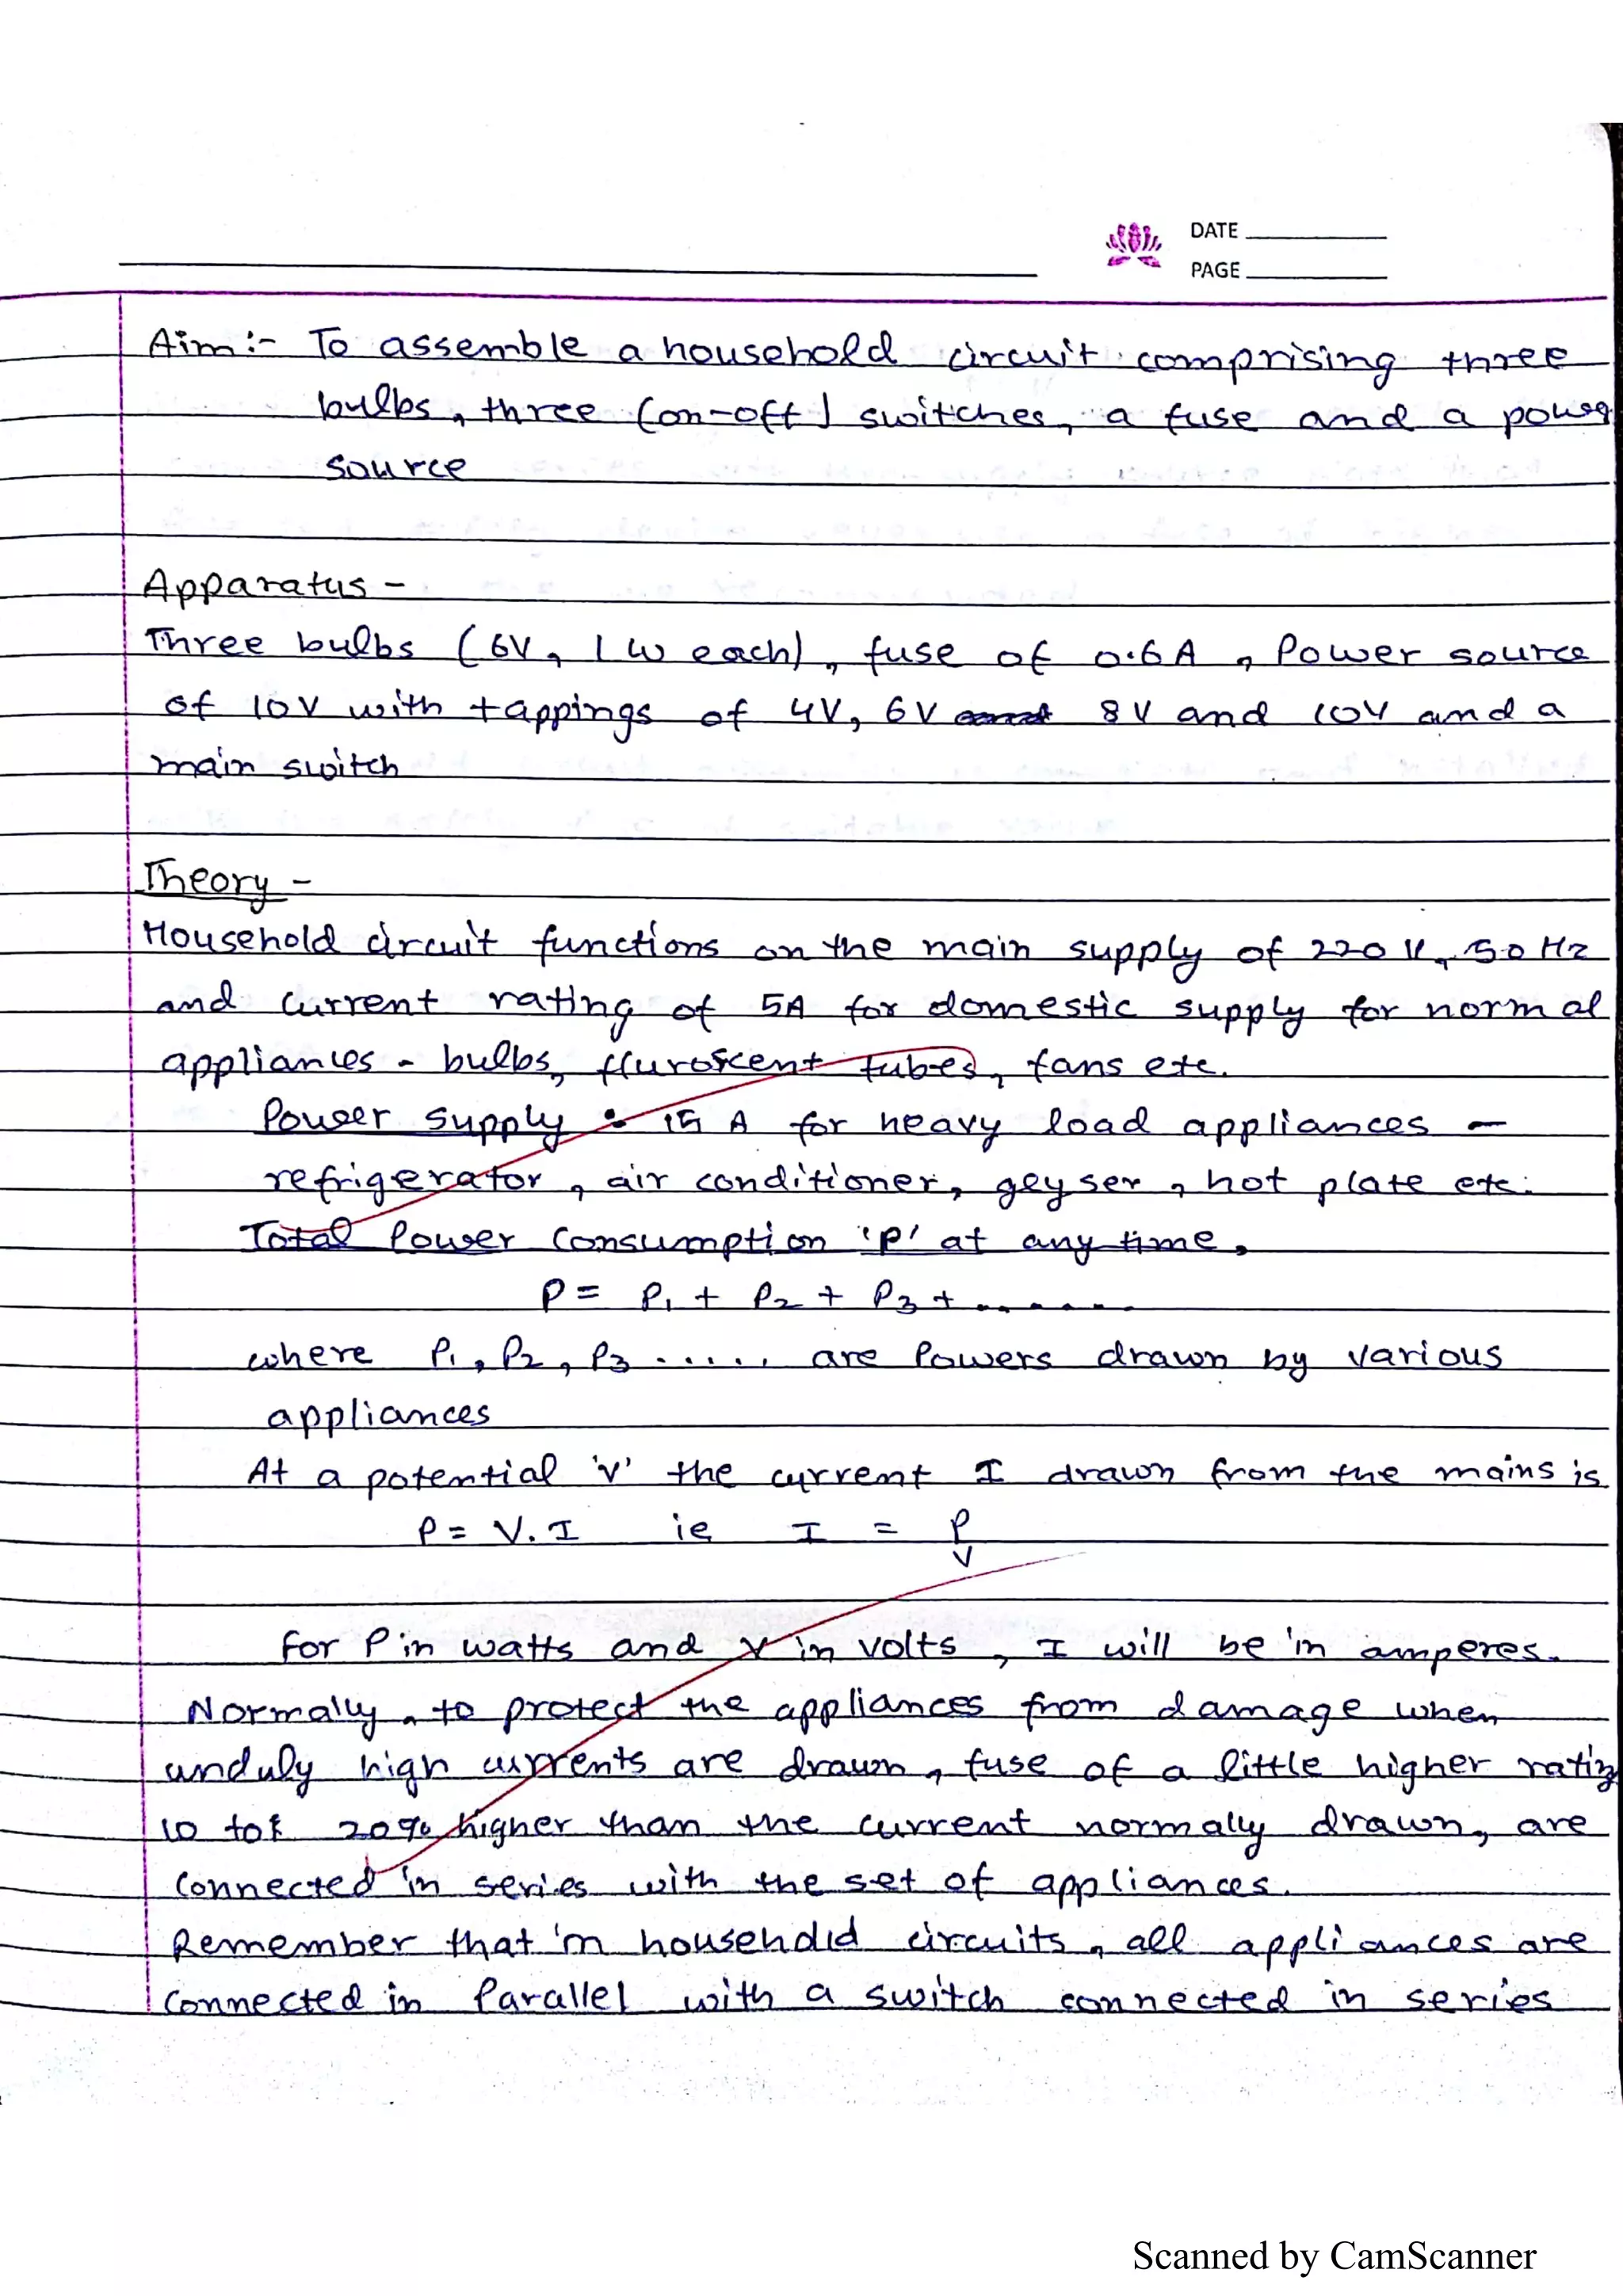 DATE
PAGE
Aim :- To assemble a household circuit comprising three
bulbs, three (on-off) switches, a fuse and a power
source
Apparatus -
Three bulbs (6V, 1W each), fuse of 0.6A, Power source
of 10V with tappings of 4V, 6V 8V and 10V and a
main switch
Theory -
Household circuit functions on the main supply of 220 V, 50 Hz
and current rating of 5A for domestic supply for normal
appliances - bulbs, fluroscent tubes, fans etc.
Power supply : 15 A for heavy load appliances -
refrigerator, air conditioner, geyser, hot plate etc.
Total Power Consumption 'P' at any time,
P = P1 + P2 + P3 + .......
where P1, P2, P3 ...... are Powers drawn by various
appliances
At a potential 'V' the current I drawn from the mains is
P = V. I ie I = P/V
For P in watts and V in volts, I will be in amperes.
Normally, to protect the appliances from damage when
unduly high currents are drawn, fuse of a little higher rating
10 to 20% higher than the current normally drawn, are
connected in series with the set of appliances.
Remember that in household circuits, all appliances are
connected in Parallel with a switch connected in series
Scanned by CamScanner